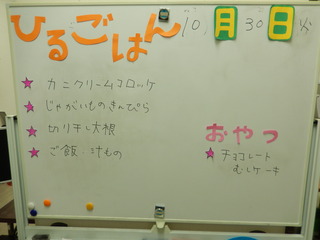 ひるごはん 10月30日
カニクリームコロッケ
じゃがいものきんぴら
切り干し大根
ご飯・汁もの
おやつ
チョコレート
むしケーキ